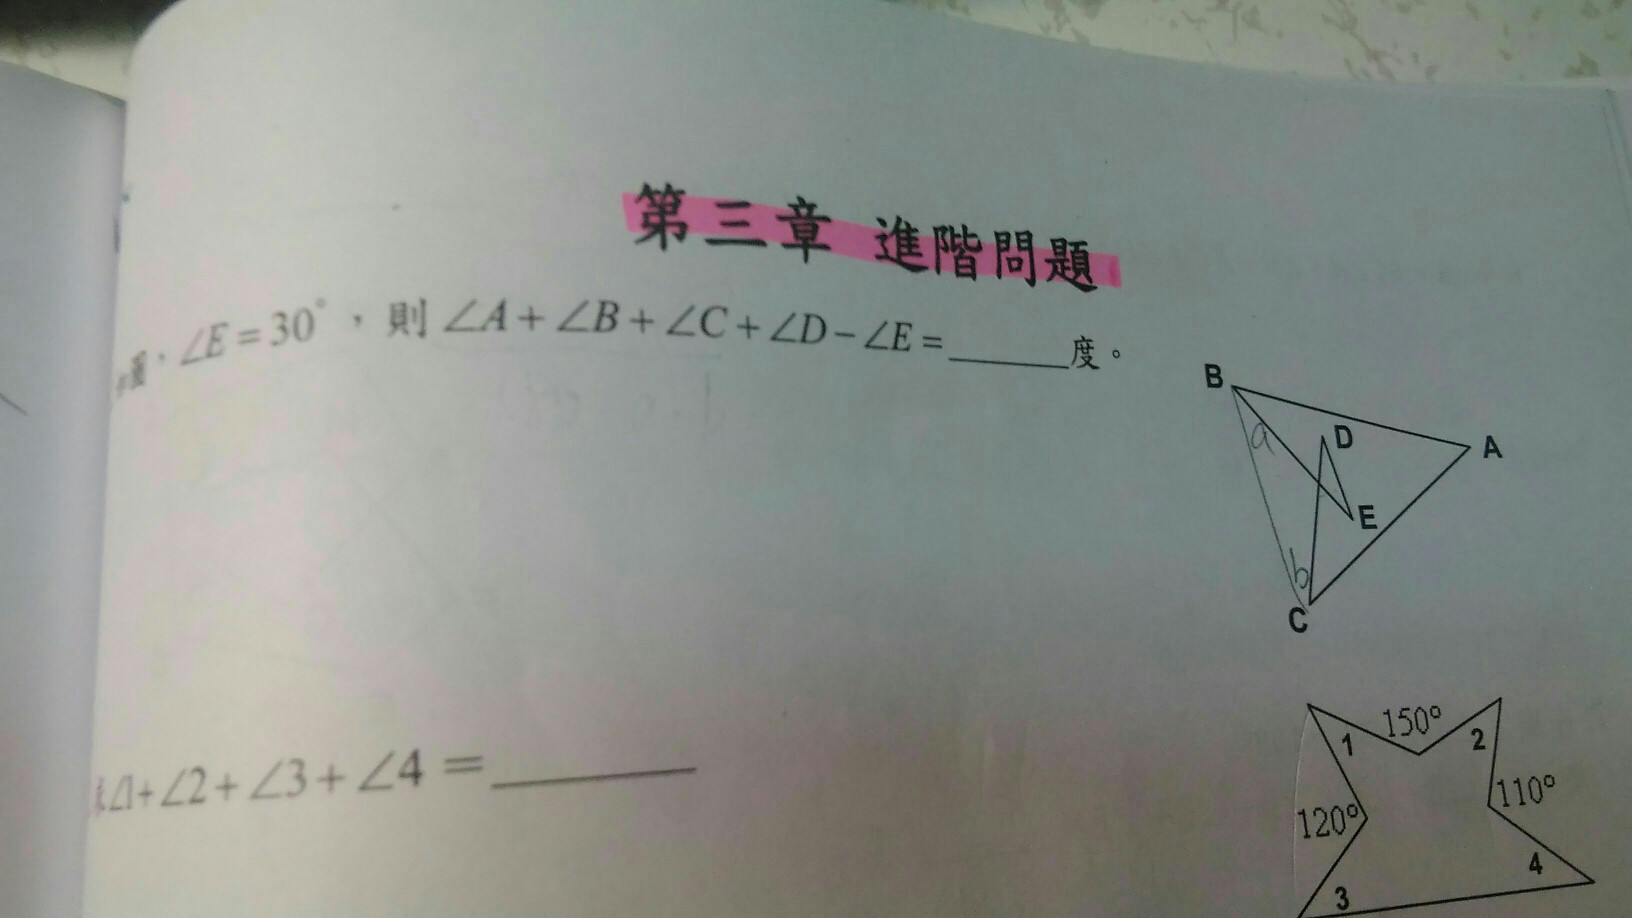 第三章 進階問題
圖，∠E=30°，則∠A+∠B+∠C+∠D−∠E=______度。
B
a
D
A
E
b
C
∠1+∠2+∠3+∠4=______
150°
1
2
110°
120°
4
3